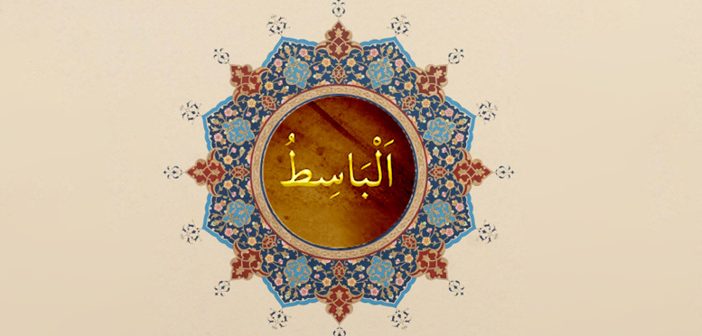 اَلْبَاسِطُ